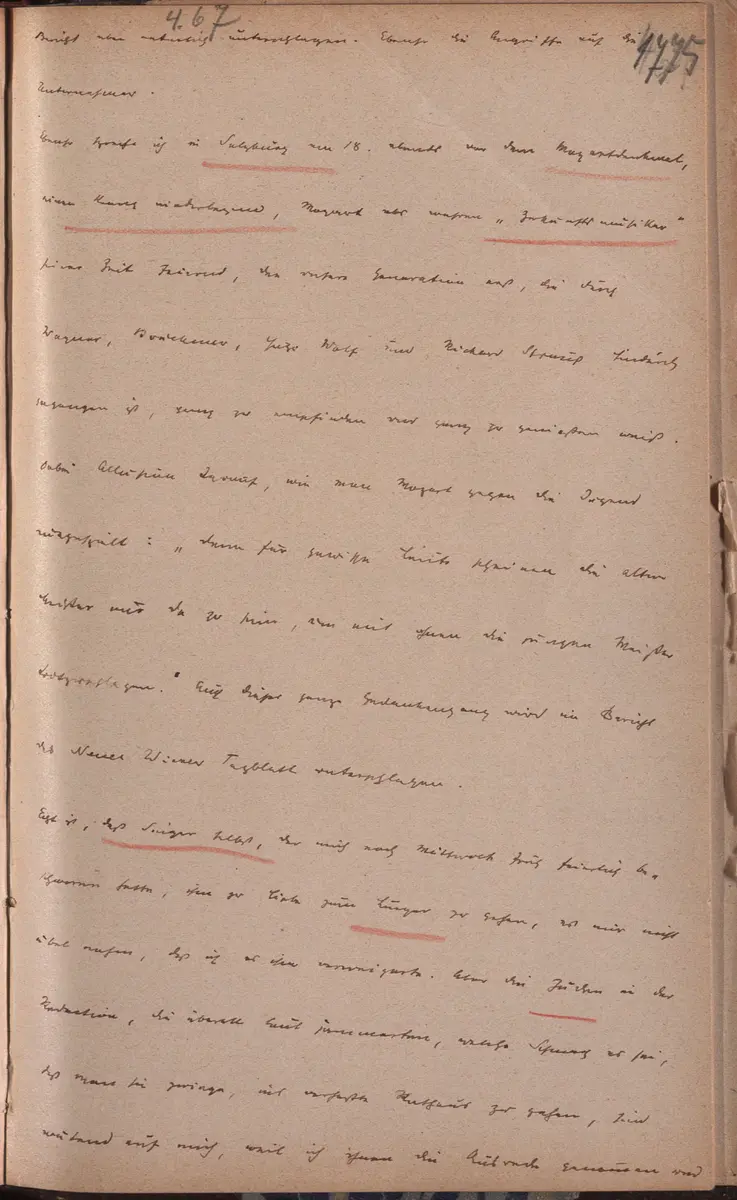 4.67
4775
Bericht aber natürlich unterschlagen. Ebenso die Angriffe auf die
Unternehmer.
Ebenso sprach ich in Salzburg am 18. abends vor dem Mozartdenkmal,
einen Kranz niederlegend, Mozart als wahren „Zukunftsmusiker"
seiner Zeit feiernd, den unsere Generation erst, die durch
Wagner, Bruckner, Hugo Wolf und Richard Strauß hindurch
gegangen ist, ganz zu empfinden und ganz zu genießen weiß.
Dabei Allusion darauf, wie man Mozart gegen die Jugend
ausgespielt: „denn für gewisse Leute scheinen die alten
Meister nur da zu sein, um mit ihnen die jungen Meister
totzuschlagen." Auch dieser ganze Gedankengang wird im Bericht
des Neuen Wiener Tagblatt unterschlagen.
Echt ist, daß Singer selbst, der mich noch Mittwoch früh feierlich be-
schworen hatte, ihm zu Liebe zum Lueger zu gehen, es mir nicht
übel nahm, daß ich es ihm verweigerte. Aber die Juden in der
Redaction, die überall laut jammerten, welche Schmach es sei,
daß man sie zwinge, ins verhaßte Rathaus zu gehen, sind
wütend auf mich, weil ich ihnen die Ausrede genommen und